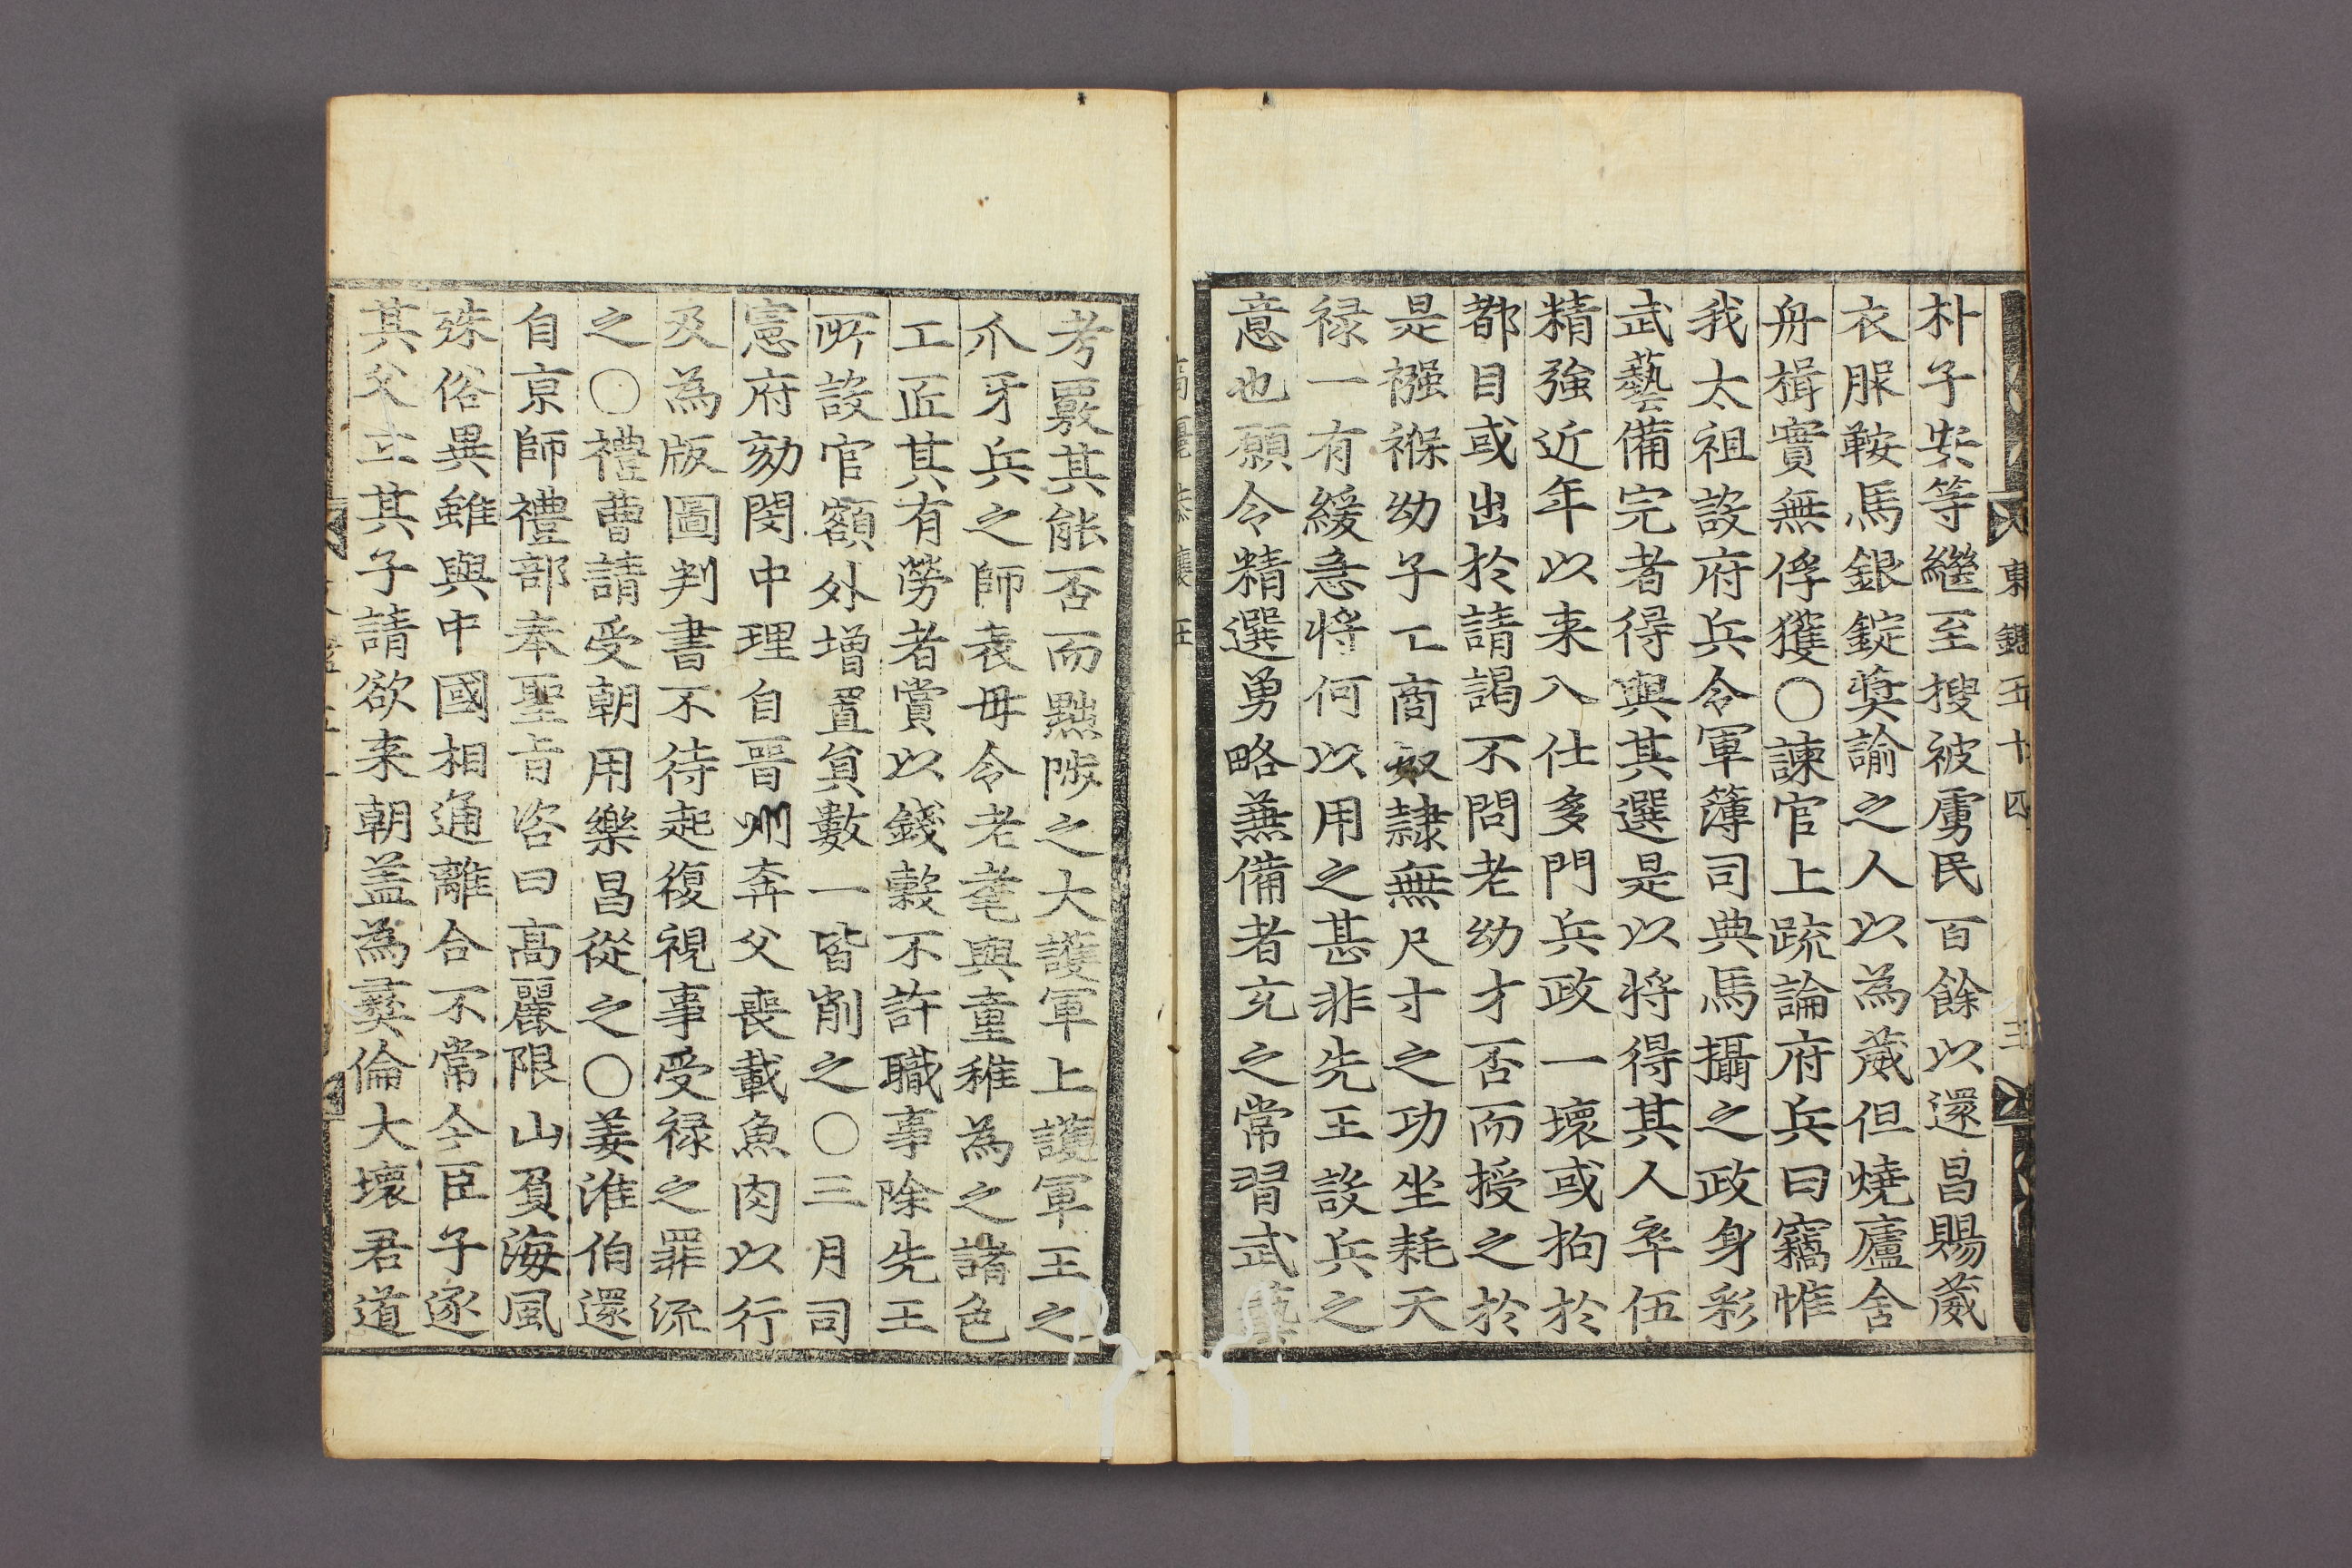 東鑑五十四
三
朴子安等繼至搜被虜民百餘以還昌賜葳
衣服鞍馬銀錠奬諭之人以為葳但燒廬舍
舟楫實無俘獲〇諫官上疏論府兵曰竊惟
我太祖設府兵令軍簿司典馬攝之政身彩
武藝備完者得與其選是以將得其人卒伍
精強近年以来入仕多門兵政一壞或拘於
都目或出於請謁不問老幼才否而授之於
是襁褓幼子工商奴隷無尺寸之功坐耗天
禄一有緩急將何以用之甚非先王設兵之
意也願令精選勇略兼備者充之常習武藝
考覈其能否而黜陟之大護軍上護軍王之
爪牙兵之師表毋令老耄與童稚為之諸色
工匠其有勞者賞以錢穀不許職事除先王
所設官額外增置負數一皆削之〇三月司
憲府劾閔中理自晉州奔父喪載魚肉以行
及為版圖判書不待起復視事受禄之罪流
之〇禮曹請受朝用樂昌從之〇姜淮伯還
自京師禮部奉聖旨咨曰高麗限山負海風
殊俗異雖與中國相通離合不常今臣子逐
其父立其子請欲来朝盖為彝倫大壞君道